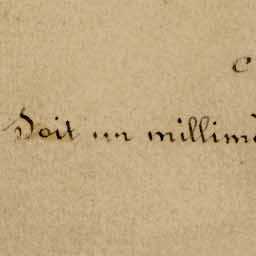 C
Soit un millimè